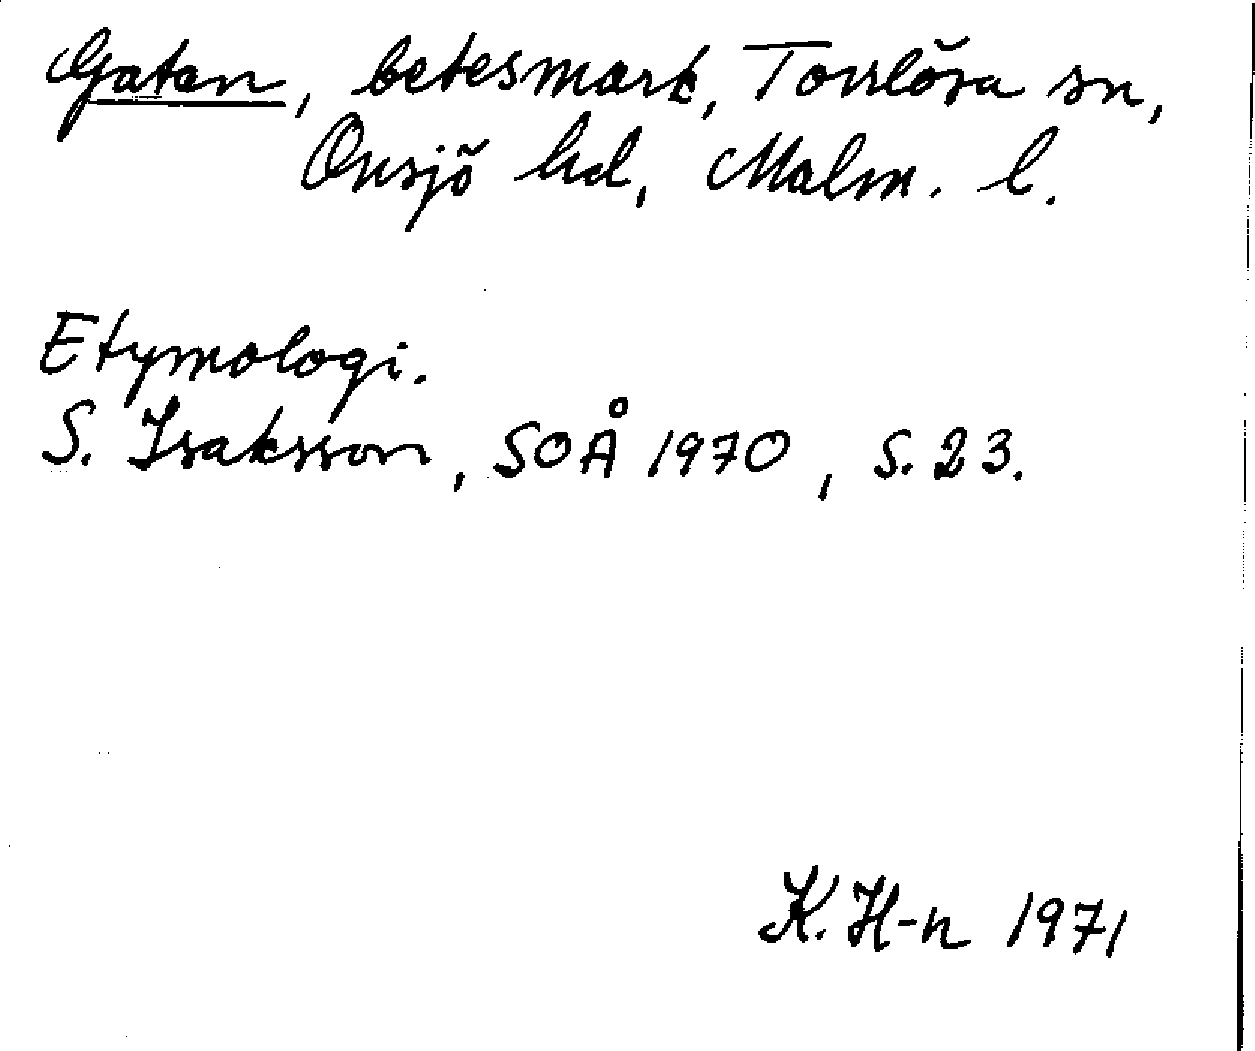 Gatan, betesmark, Torrlösa sn,
Onsjö hd, Malm. l.
Etymologi.
S. Isaksson, SOÅ 1970, s. 23.
K. H-n 1971